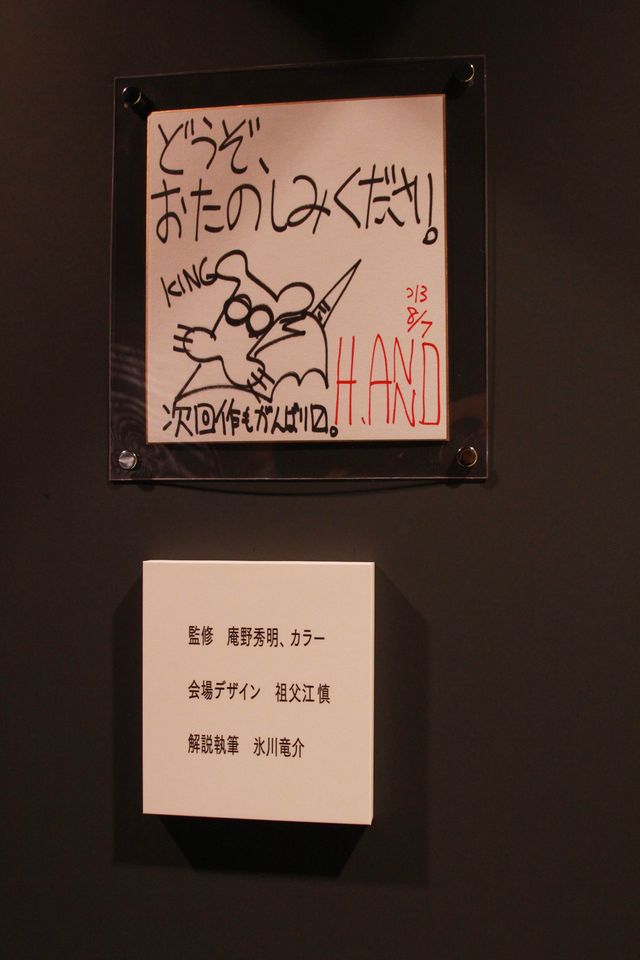 どうぞ、
おたのしみください。
KING
'13
8/7
H.ANND
次回作もがんばり〼。
監修　庵野秀明、カラー
会場デザイン　祖父江慎
解説執筆　氷川竜介